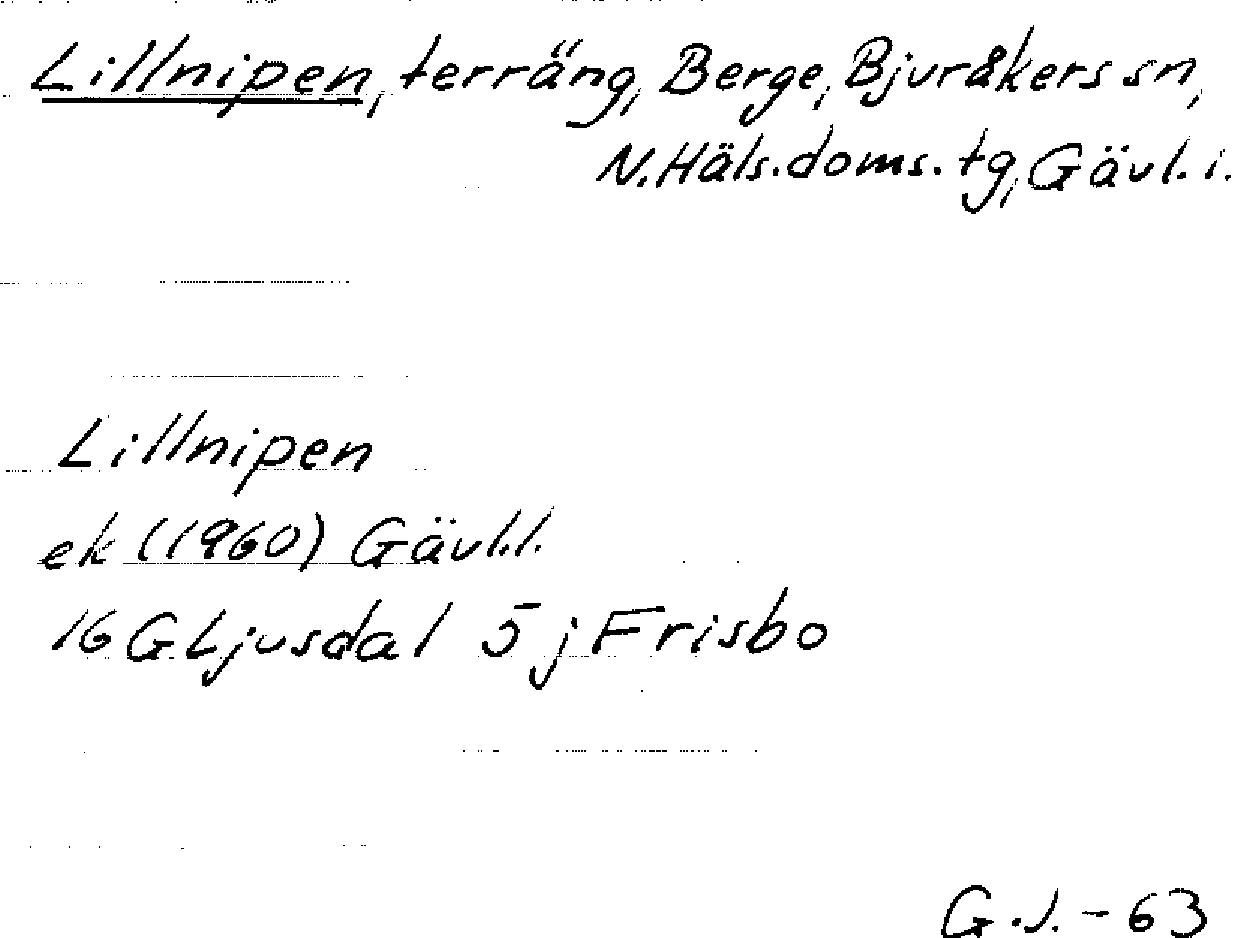 Lillnipen, terräng, Berge, Bjuråkers sn,
N.Häls.doms.tg, Gävl.l.
Lillnipen
ek (1960) Gävl.l.
16 G Ljusdal 5 j Frisbo
G.J. - 63